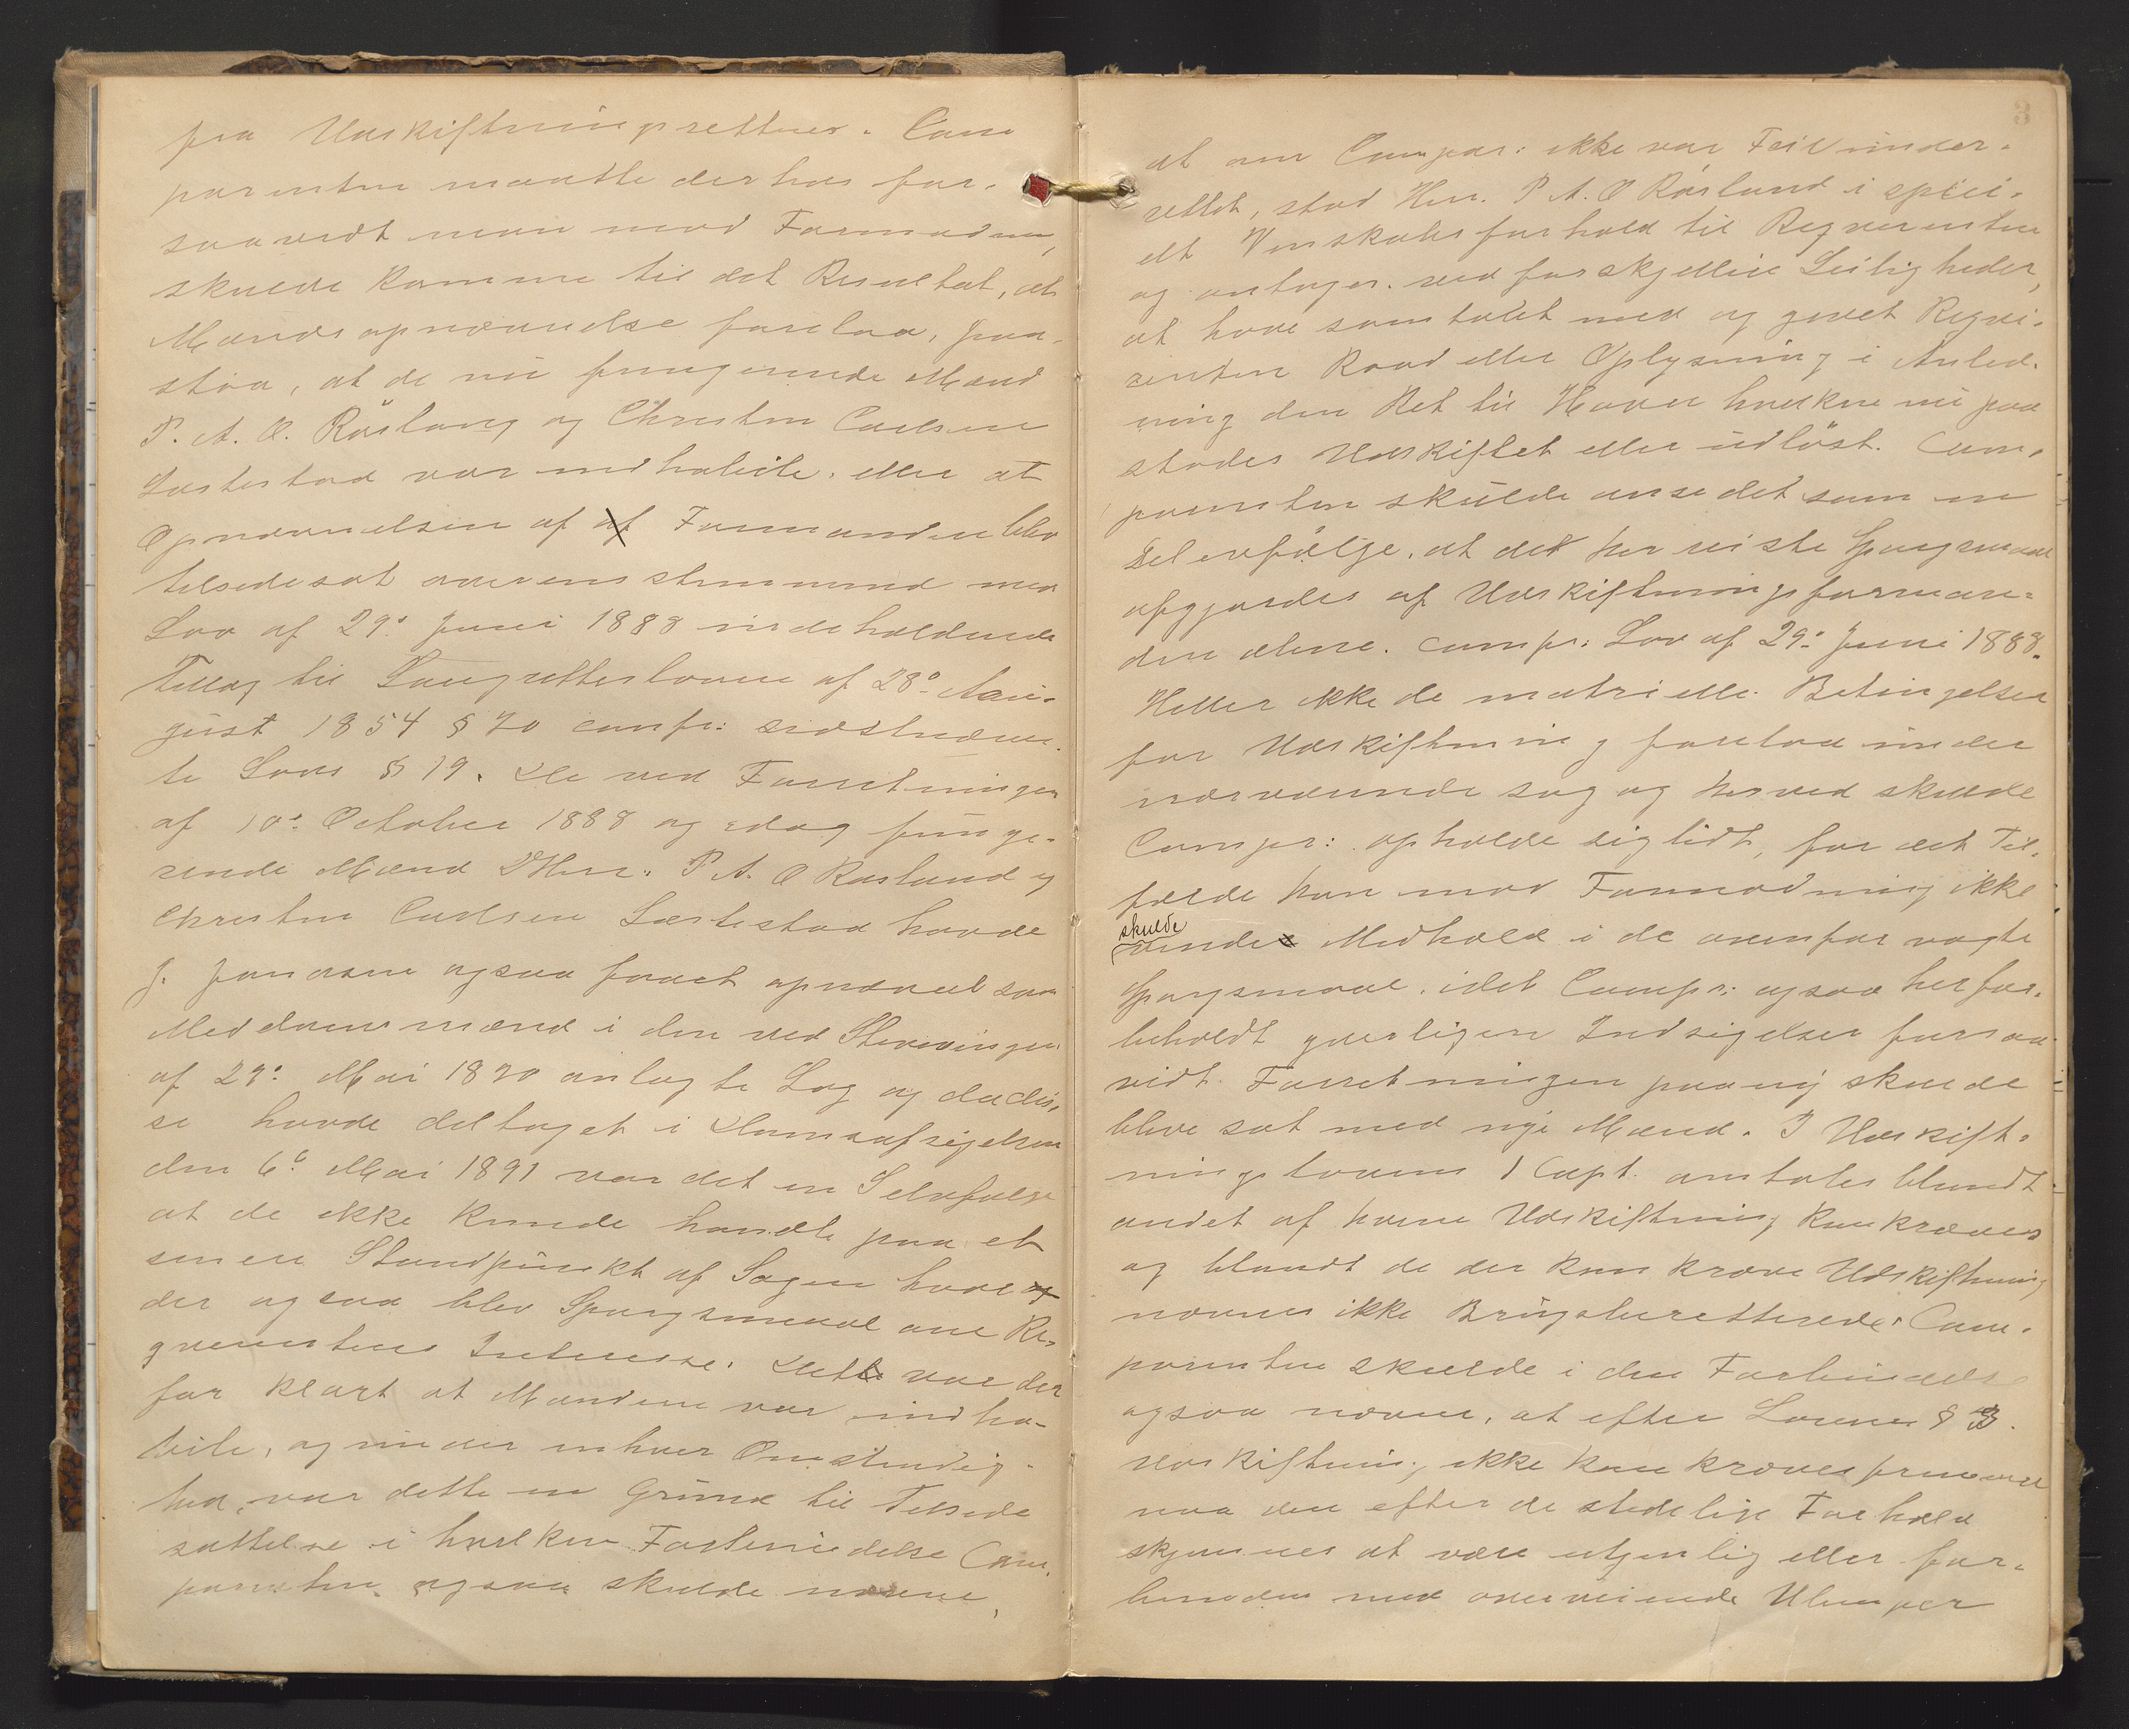 fra Udskiftningsretten. Com
parenten maatte derhos for-
saavidt man mod Formodning
skulde komme til det Resultat, at
Mandsopnævnelse forelaa, paa-
staa, at de nu fungerende Mænd
P. A. O. Røsland og Christen Carlsen
Læstestad var inhabile, eller at
Opnævnelsen af af Formanden blev
tilsidesat overensstemmende med
Lov af 29de Juni 1888 indeholdende
Tillæg til Laugrettesloven af 28de Au-
gust 1854 § 70 comfr: sidstnævn-
te Lovs § 19. De ved Forretningen
af 10de October 1888 og idag funge-
rende Mænd DHrr. P. A. O Røsland og
Christen Carlsen Læstestad havde
J. Jonassen ogsaa faaet opnævnt som
Meddomsmænd i den ved Stevningen
af 27de Mai 1890 anlagte Sag og da dis-
se havde deltaget i Domsafsigelsen
den 6te Mai 1891 var det en Selvfølge
at de ikke kunde handle paa et
senere Standpunkt af Sagen hvor
der ogsaa blev Spørgsmaal om Re-
qverentens Interesse. Dette var der
for klart at Mændene var inha-
bile, og under enhver Omstændig-
hed, var dette en Grund til Tilside
sættelse i hvilken Forbindelse Com-
parenten ogsaa skulde nævne,
3
at om Compar: ikke var Feilunder-
rettet, stod Herr. P. A. O Røsland i speci-
elt Venskabsforhold til Reqverenten
og antages ved forskjellige Leiligheder,
at have samtalet med og givet Reqvi-
renten Raad eller Oplysning i Anled-
ning den Ret til Havn hvilken nu paa
stodes Udskiftet eller udløst. Com-
parenten skulde anse det som en
Selvfølge, at det her reiste Spørgsmaal
afgjordes af Udskiftningsforman-
den alene. comfr: Lov af 29de Juni 1888.
Heller ikke de matrielle Betingelser
for Udskiftning forelaa under
nærværende sag og herved skulde
Compar: opholde sig lidt, for det Til-
fælde han mod Formodning ikke
skulde
vinde Medhold i de ovenfor vagte
Spørgsmaal, idet Compr: ogsaa her for-
beholdt yderligere Indsigelser forsaa-
vidt Forretningen paany skulde
blive sat med nye Mænd. I Udskift-
ningslovens 1 Capt. omtales blandt
andet af hvem Udskiftning kan kræves
og blandt de der kan kræve Udskiftning
nævnes ikke Brugsberettigede. Com-
parenten skulde i den Forbindelse
ogsaa nævne, at efter Lovens § 3.
Udskiftning ikke kan kræves fremmet
naar den efter de stedelige Forhold
skjønnes at være utjenlig eller for-
bunden med overveiende Ulemper